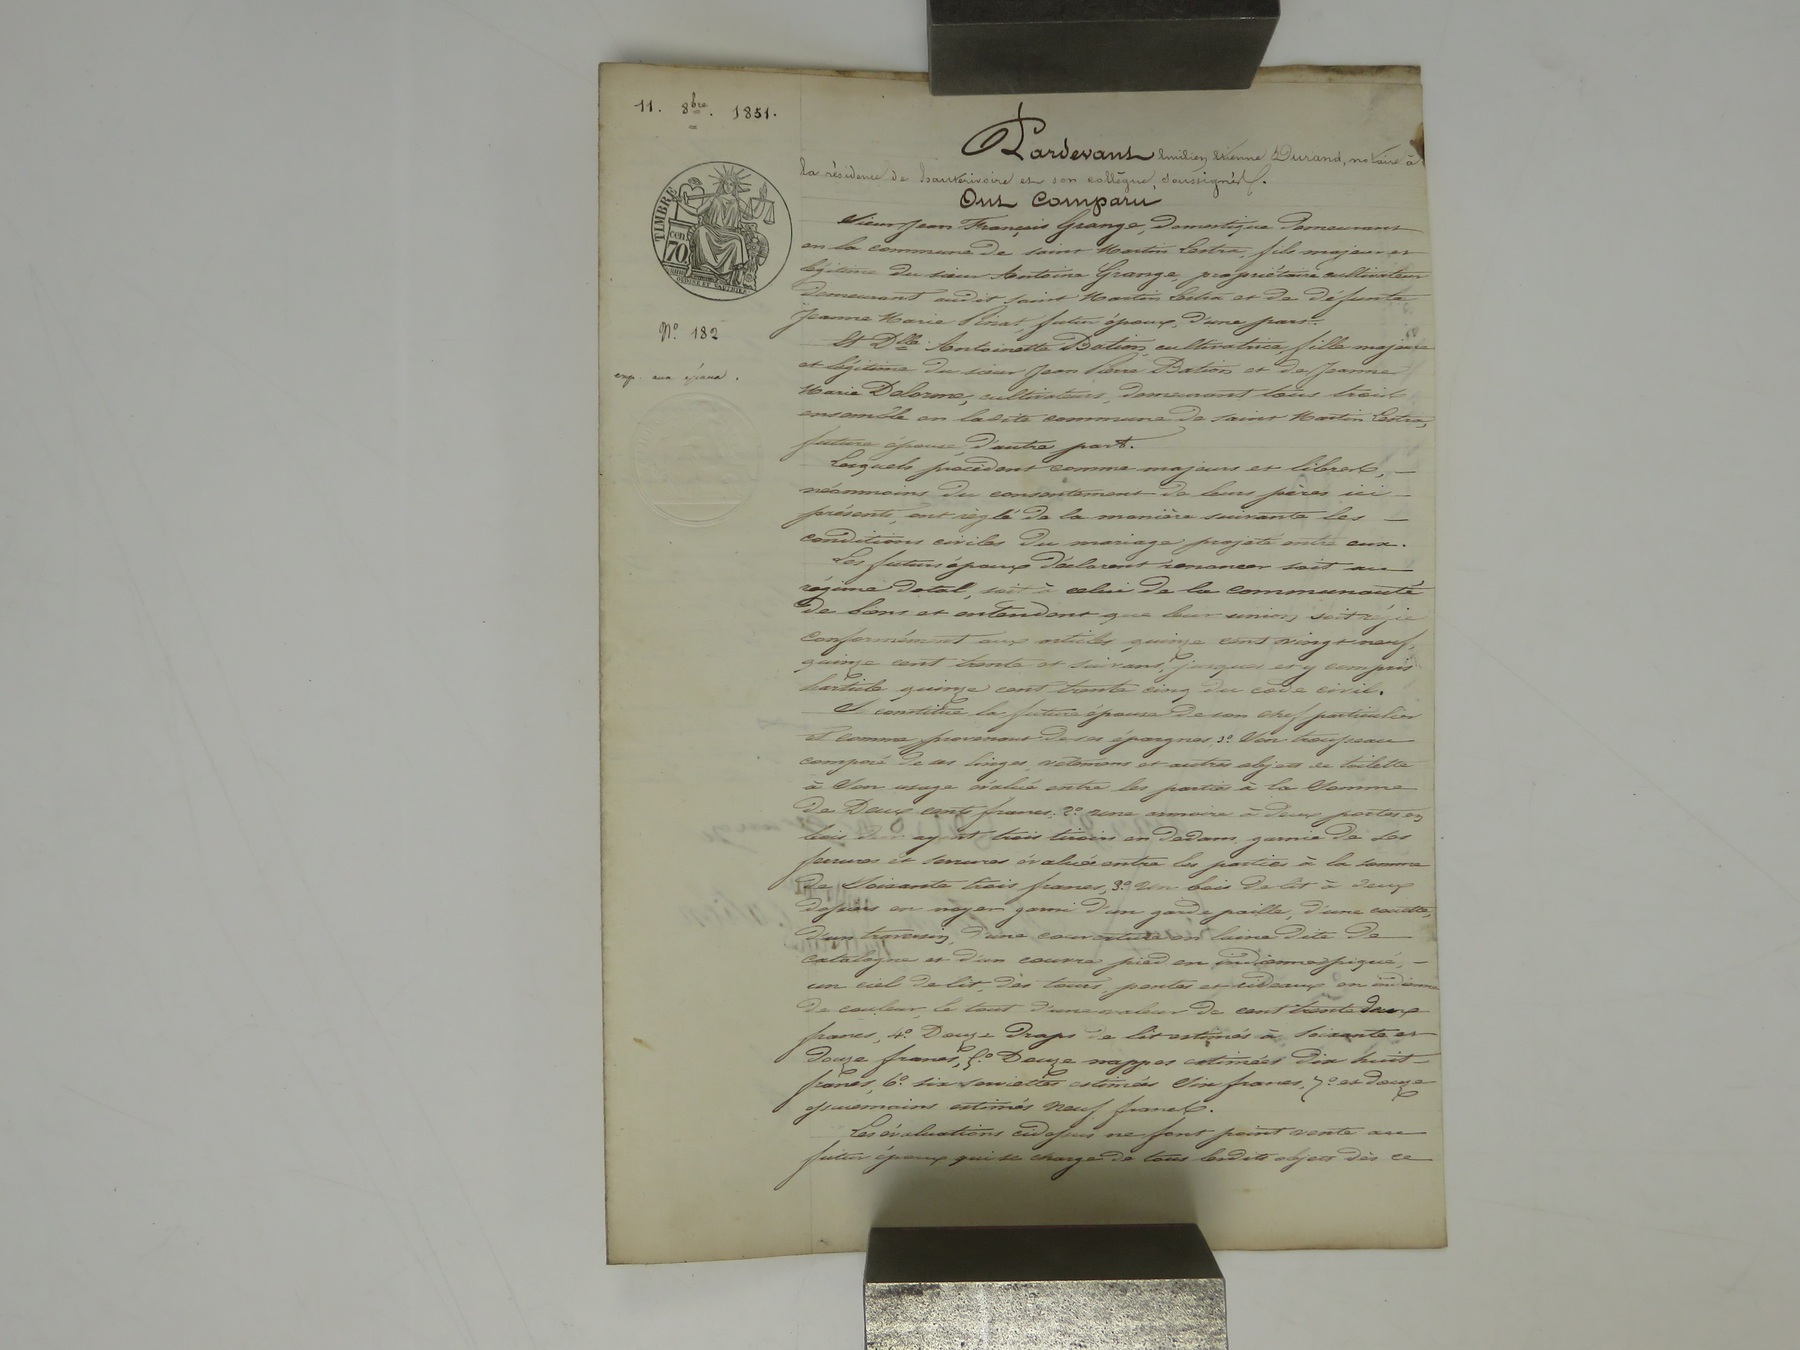 11. 8bre. 1851.
TIMBRE
cen
70
N° 182
exp. aux époux.
Pardevant Emilien Etienne Durand, notaire à
la résidence de hauterivoire et son collègue, soussignés.
Ont Comparu
Sieur Jean François Grange, Domestique Demeurant
en la commune de saint Martin Lestra, fils majeur et
légitime du sieur Antoine Grange, propriétaire cultivateur
demeurant audit saint Martin Lestra et de défunte
Jeanne Marie futur époux, d'une part.
Et Dlle Antoinette Bation, cultivatrice, fille majeure
et légitime du sieur Jean Pierre Bation et de Jeanne
Marie Delorme, cultivateurs, demeurant tous trois
ensemble en ladite commune de saint Martin Lestra,
future épouse, d'autre part.
Lesquels procédant comme majeurs et libres, —
néanmoins du consentement de leurs pères ici —
présents, ont réglé de la manière suivante les —
conditions civiles du mariage projeté entre eux.
Les futurs époux déclarent renoncer soit au
régime dotal, soit à celui de la communauté
de biens et entendent que leur union soit régie
conformément aux articles quinze cent vingt neuf,
quinze cent trente et suivans, jusques et y compris
l'article quinze cent trente cinq du code civil.
Se constitue la future épouse de son chef particulier
et comme provenant de ses épargnes, 1° Son trousseau
composé de ses linges, vetemens et autres objets de toilette
à son usage évalué entre les parties à la Somme
de Deux cents francs, 2° une armoire à deux portes en
bois dur ayant trois tiroirs en dedans, garnie de ses
ferrures et serrures évaluée entre les parties à la somme
de Soixante trois francs, 3° un bois de lit à deux
dossiers en noyer garni d'un garde paille, d'une couette,
d'un traversin, d'une couverture en laine dite de
catalogne et d'un couvre pied en indienne piqué, —
un ciel de lit, des tours, pentes et rideaux en indienne
de couleur, le tout d'une valeur de cent trente deux
francs, 4° Douze Draps de lit estimés à soixante et
douze francs, 5° Douze nappes estimées dix huit
francs, 6° six serviettes estimées Six francs, 7° et douze
essuiemains estimés neuf francs.
Les évaluations cidessus ne font point vente au
futur époux qui se charge de tous lesdits objets dès ce